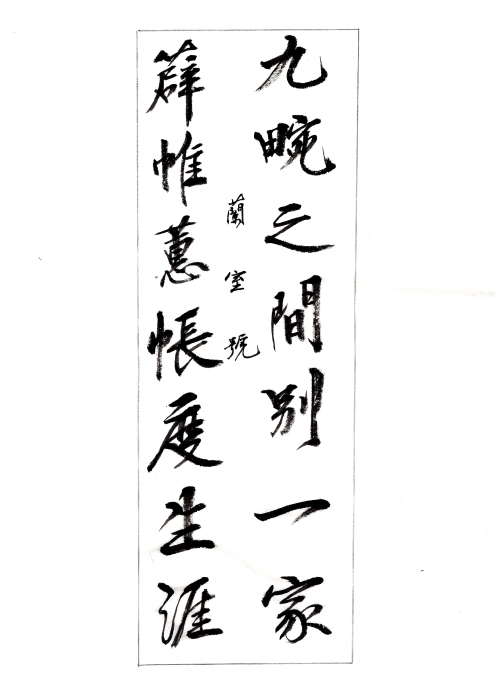 九畹之間別一家
薜帷蕙帳度生涯
蘭室號